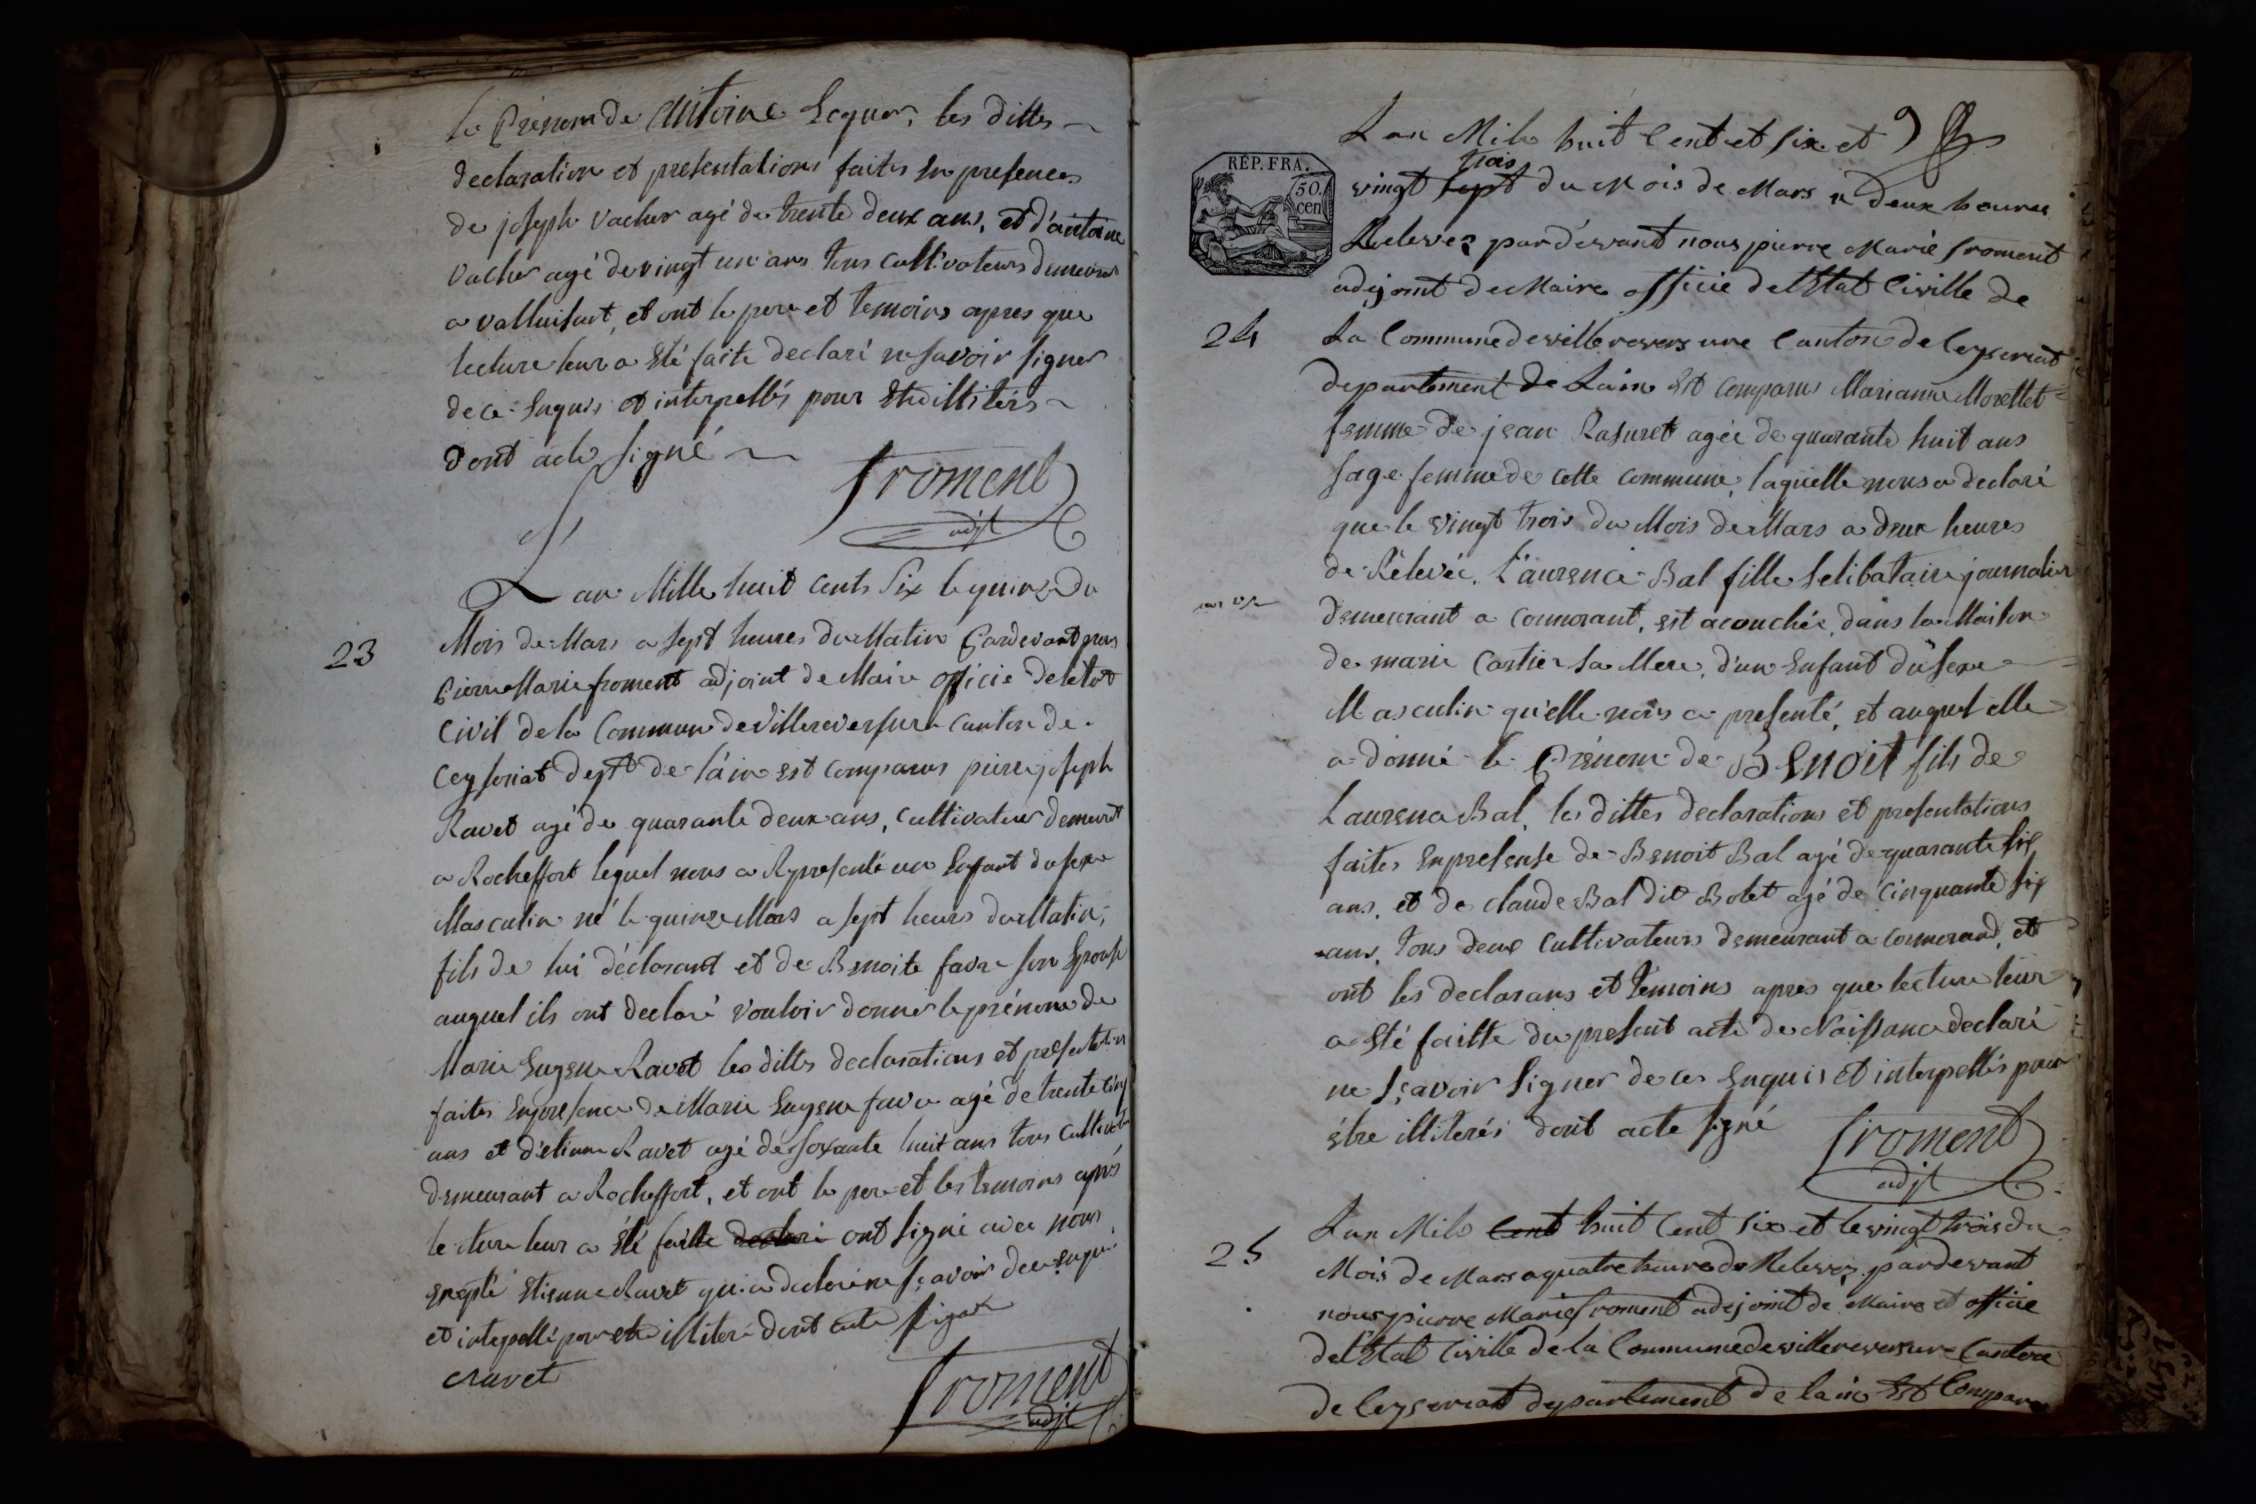 le Prénom de Antoine Lequer, les dittes
declaration et presentations faites en presences
de joseph vacher agé de trente deux ans, et d'antoine
vacher agé de vingt un ans tous cultivateurs demeurant
a valluisant, et ont le pere et temoins apres que
lecture leur a eté faite declaré ne savoir signer
de ce enquis et interpellés pour etre illiterés
dont acte signé
froment
adjt
L an Mille huit cents six le quinze du
23
Mois de Mars a sept heures du Matin Pardevant nous
Pierre Marie froment adjoint de Maire officie de létat
Civil de la Commune de Villereversure canton de
Ceyseriat dept de lain est comparus pierre joseph
Ravet agé de quarante deux ans, cultivateur demeurt
a Rocheffort lequel nous a Representé un Enfant du sexe
Masculin né le quinze Mars a sept heures du Matin,
fils de lui déclarant et de Benoite favre son Epouse
auquel ils ont declaré vouloir donner le prénom de
Marie Eugene Ravet les dittes declarations et presentation
faites Enpresence de Marie Eugene favre agé de trente cinq
ans et d'étienne Ravet agé de soixante huit ans tous cultivateurs
demeurant a Rocheffort, et ont le pere et les temoins après
lecture leur a eté faitte declaré ont signé avec nous
Excepté Etienne Ravet qui a declaré ne sçavoir de ce enquis
et interpellé pour etre illiteré dont acte signé
cravet
froment
adjt
9
REP. FRA.
50.
cen
Lan Mile huit Cent et six et
trois
vingt sept du Mois de Mars a deux heures
Relevez pardevant nous pierre Marie froment
adejoint de Maire officié de lEtat Civille de
24
La Commune de villereversure Canton de Ceyseriat
departement de Lain Est comparus Marianne Morellet
femme de jean Rasuret agée de quarante huit ans
sage femme de cette commune, laquelle nous a declaré
que le vingt trois du Mois de Mars a deux heures
de Rélevée, Laurence Bal fille selibataire journaliere
demeurant a Cormorant, est acouchée, dans la Maison
de marie Cartier sa Mere, d'un Enfant du sexe
Masculin qu'elle nous a presenté, et auquel elle
a donné le Prénom de BENOIT fils de
Laurence Bal, les dittes declarations et presentations
faites Enpresense de Benoit Bal agé de quarante six
ans, et de claude Bal dit Bolet agé de Cinquante six
ans, tous deux cultivateurs demeurant a cormorand, et
ont les declarans et temoins apres que lecture leur
a eté faitte du present acte de Naissance declaré
ne sçavoir signer de ces enquis et interpellés pour
être illiterés dont acte signé
froment
adjt
25
Lan Mile Cent huit Cent six et le vingt trois du
Mois de Mars a quatre heure de Relevez pardevant
nous pierre Marie froment adejoint de Maire et officie
de lEtat Civille de la Commune de villereversure Canton
de Ceyseriat departement de lain Est Comparu